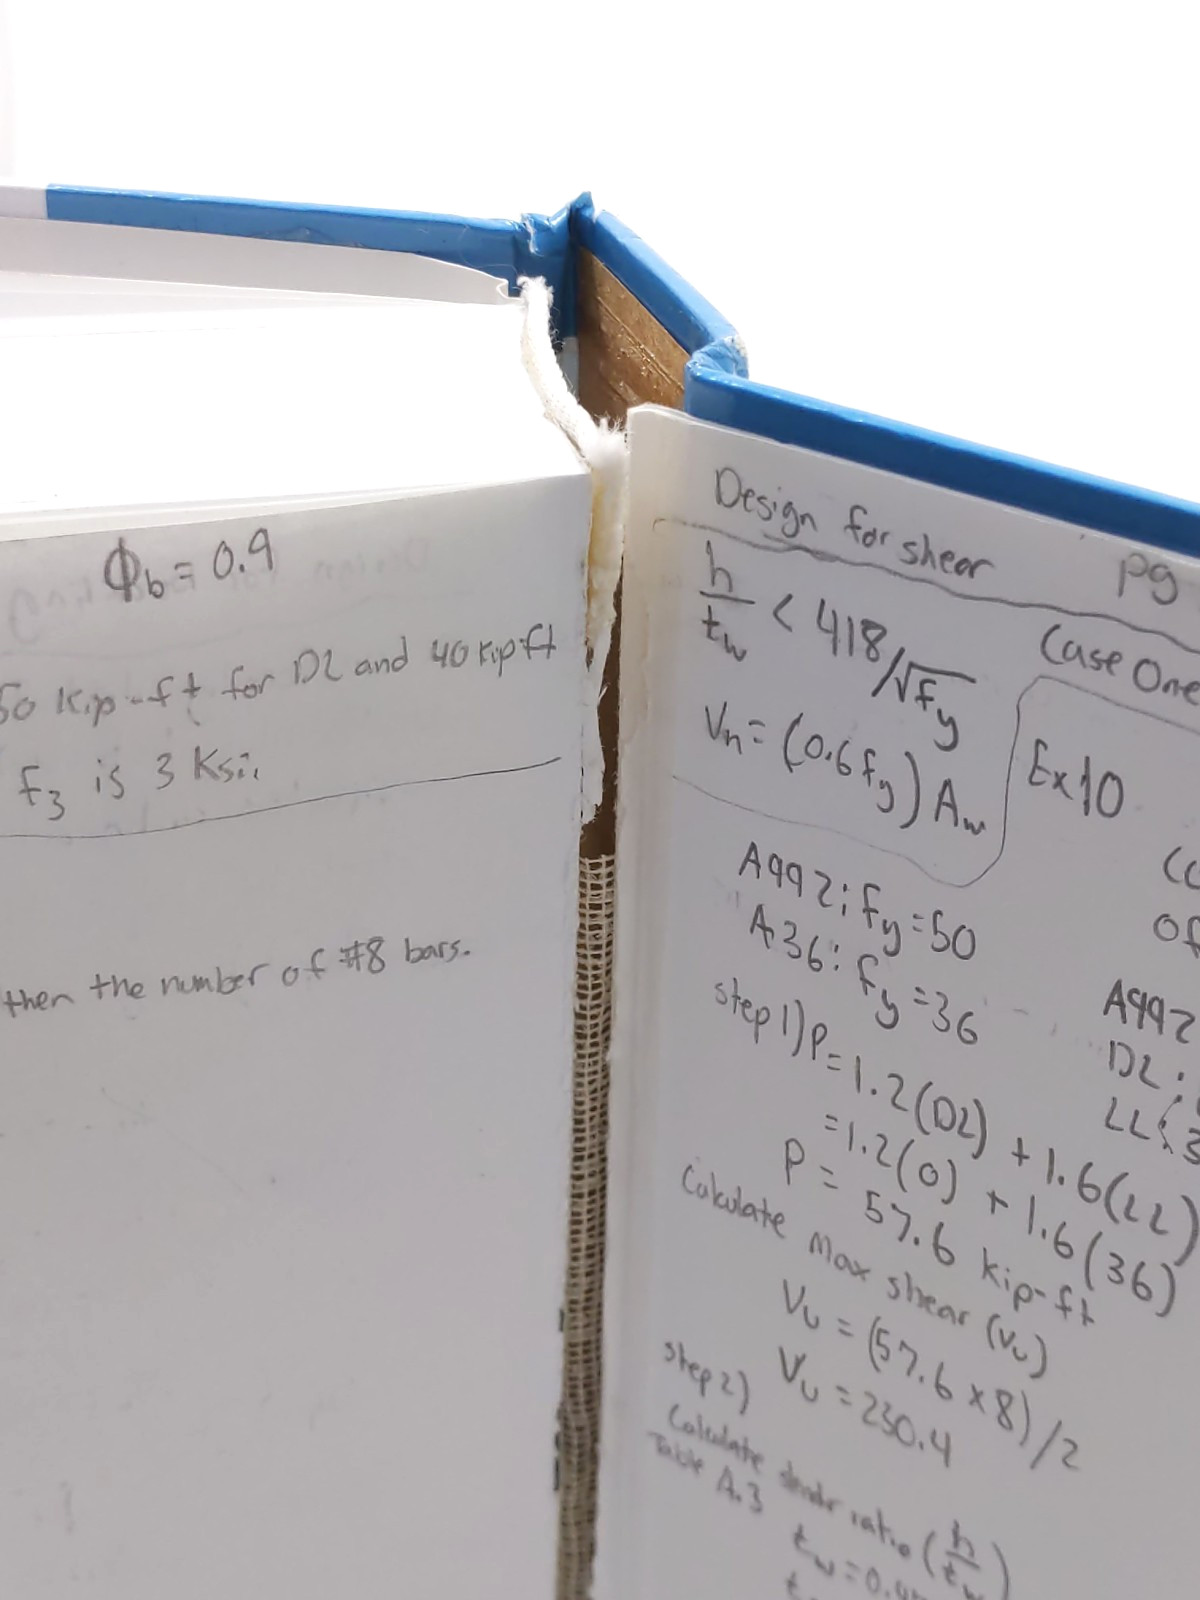 Φb = 0.9
50 Kip-ft for DL and 40 Kip-ft
f3 is 3 Ksi.
then the number of #8 bars.
Design for shear pg
h/tw < 418/√fy
Case One
Vn = (0.6fy) Aw
Ex10
A992; fy = 50
A36: fy = 36
Of
A992
DL:
LL:
step 1) P = 1.2(DL) + 1.6(LL)
= 1.2(0) + 1.6(36)
P = 57.6 kip-ft
Calculate max shear (Vu)
Vu = (57.6 x 8)/2
Vu = 230.4
step 2)
Calculate ratio (h/tw)
Table A.3
tw = 0.